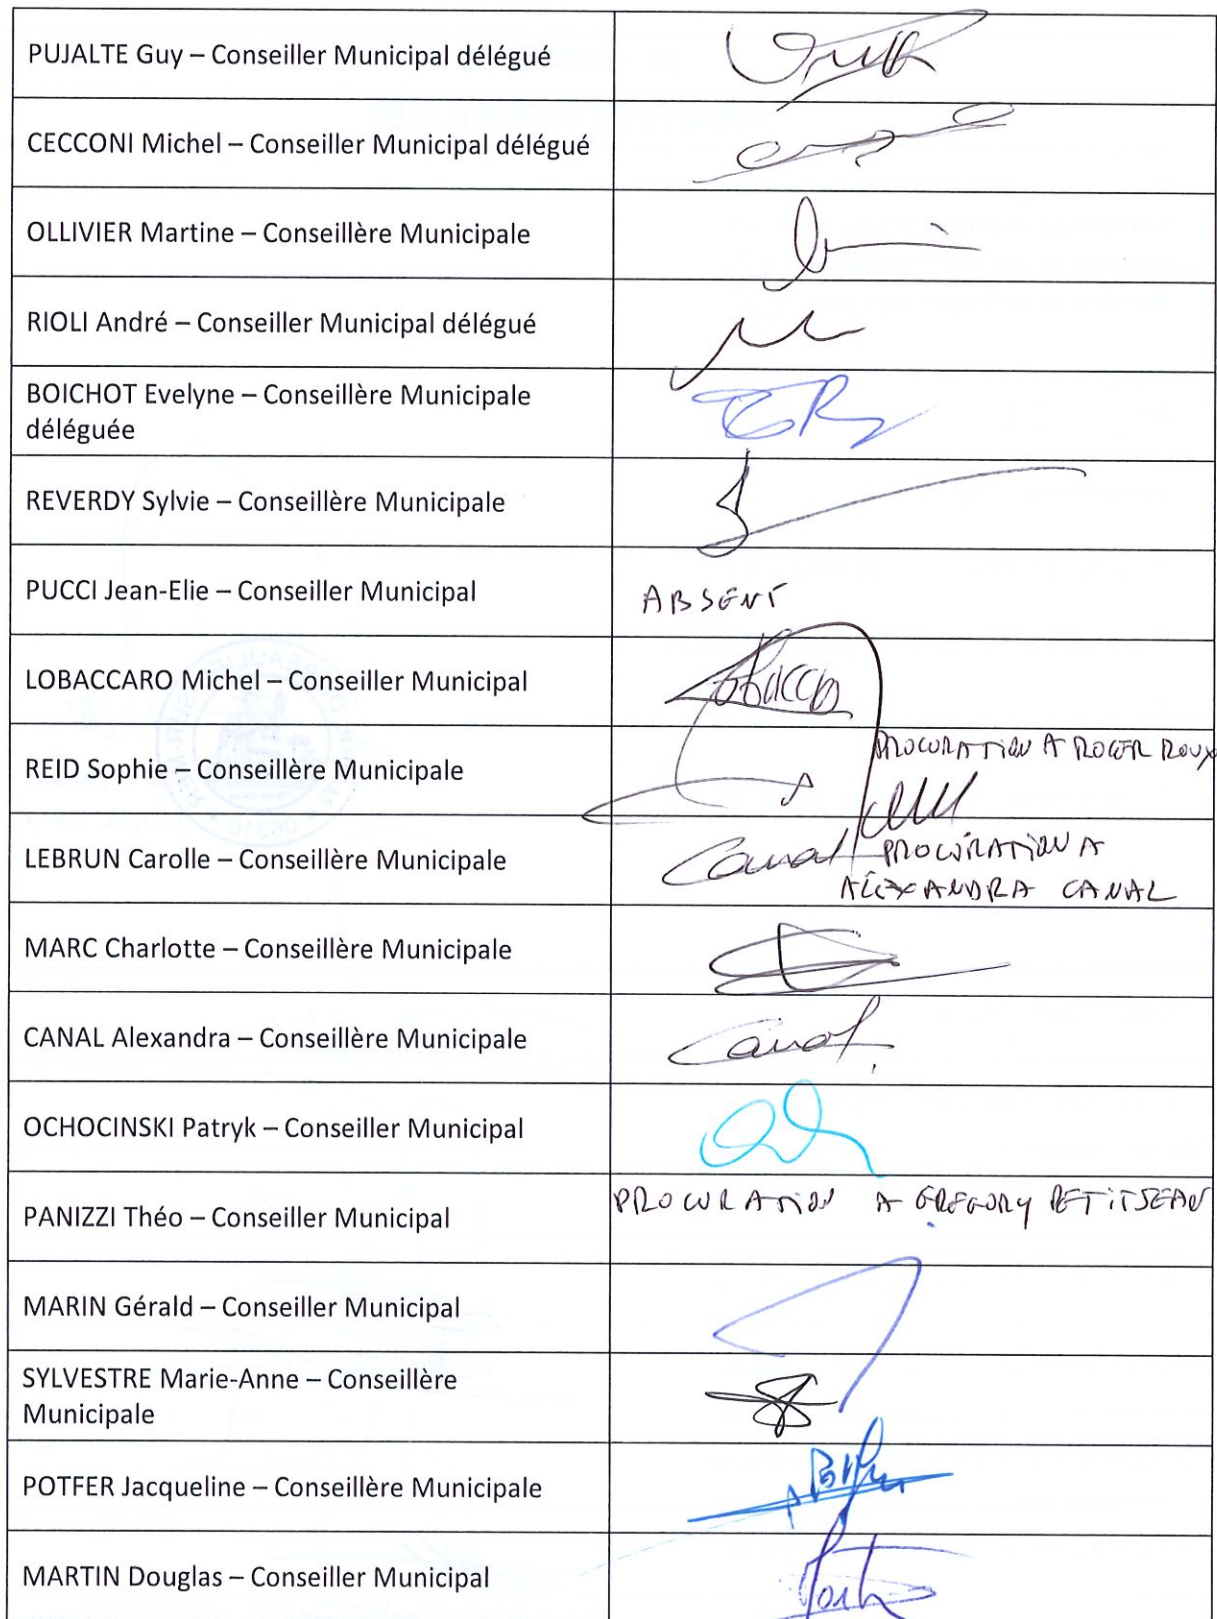 PUJALTE Guy – Conseiller Municipal délégué
CECCONI Michel – Conseiller Municipal délégué
OLLIVIER Martine – Conseillère Municipale
RIOLI André – Conseiller Municipal délégué
BOICHOT Evelyne – Conseillère Municipale
déléguée
REVERDY Sylvie – Conseillère Municipale
PUCCI Jean-Elie – Conseiller Municipal
ABSENT
LOBACCARO Michel – Conseiller Municipal
REID Sophie – Conseillère Municipale
PROCURATION A ROGER ROUX
LEBRUN Carolle – Conseillère Municipale
Canal PROCURATION A
ALEXANDRA CANAL
MARC Charlotte – Conseillère Municipale
CANAL Alexandra – Conseillère Municipale
Canal
OCHOCINSKI Patryk – Conseiller Municipal
PANIZZI Théo – Conseiller Municipal
PROCURATION A GREGORY PETITJEAN
MARIN Gérald – Conseiller Municipal
SYLVESTRE Marie-Anne – Conseillère
Municipale
POTFER Jacqueline – Conseillère Municipale
MARTIN Douglas – Conseiller Municipal